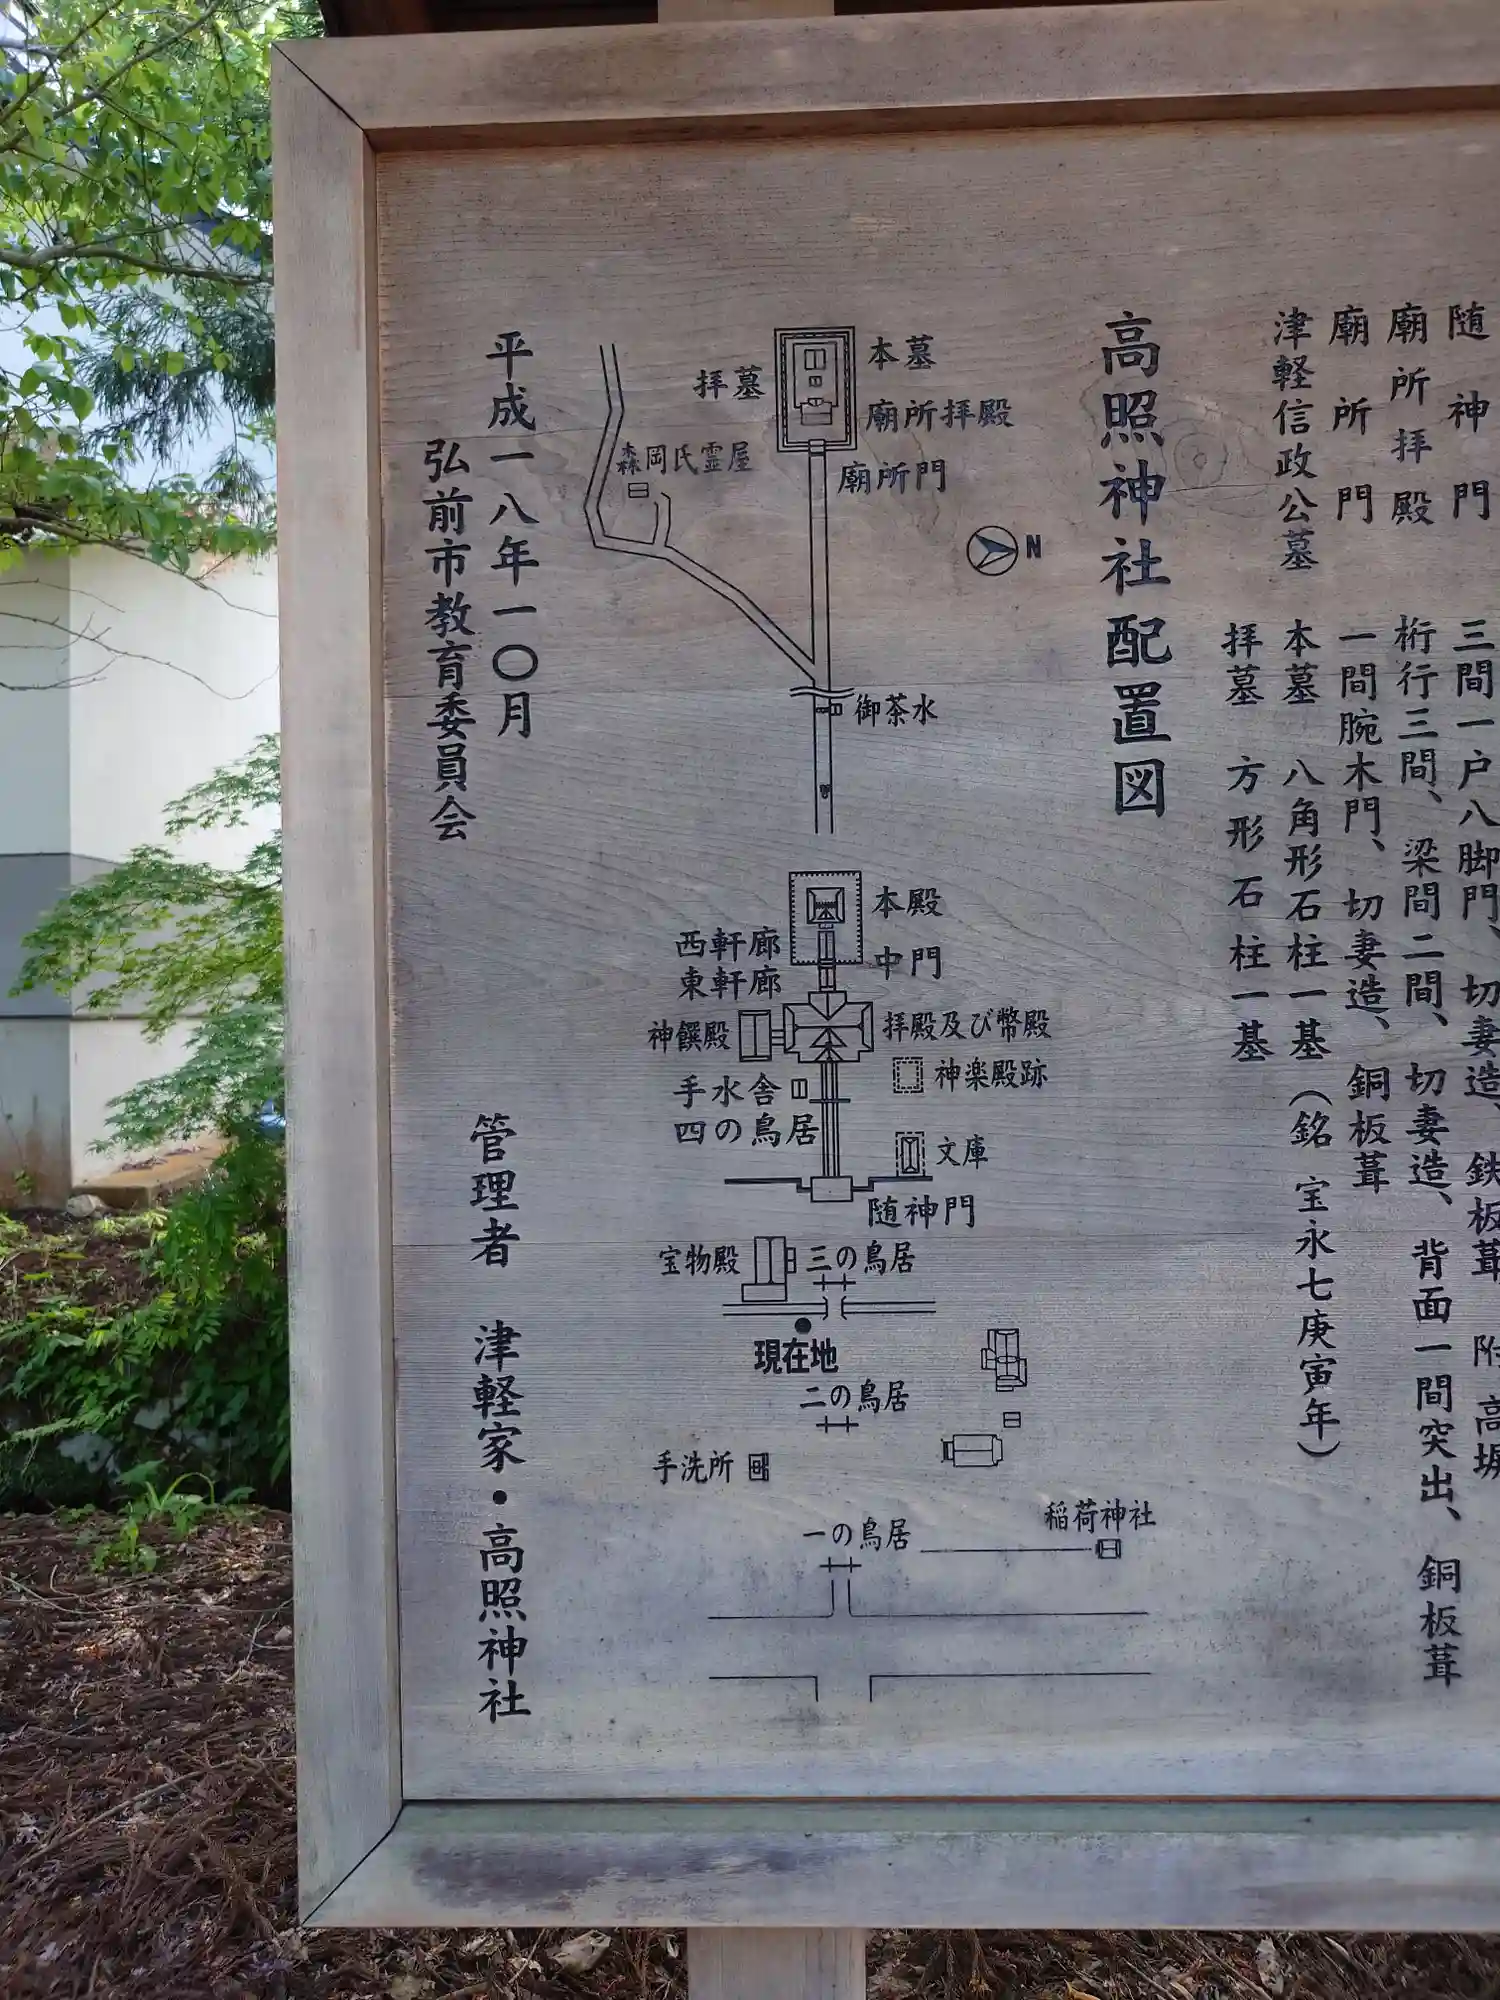 随神門　三間一戸八脚門、切妻造、鉄板葺　附　高塀
廟所拝殿　桁行三間、梁間二間、切妻造、背面一間突出、銅板葺
廟所門　一間腕木門、切妻造、銅板葺
津軽信政公墓　本墓　八角形石柱一基（銘　宝永七庚寅年）
拝墓　方形石柱一基
高照神社配置図
本墓
拝墓
廟所拝殿
森岡氏霊屋
廟所門
N
御茶水
本殿
西軒廊
中門
東軒廊
神饌殿
拝殿及び幣殿
神楽殿跡
手水舎
四の鳥居
文庫
随神門
宝物殿
三の鳥居
現在地
二の鳥居
手洗所
一の鳥居
稲荷神社
平成一八年一〇月
弘前市教育委員会
管理者　津軽家・高照神社